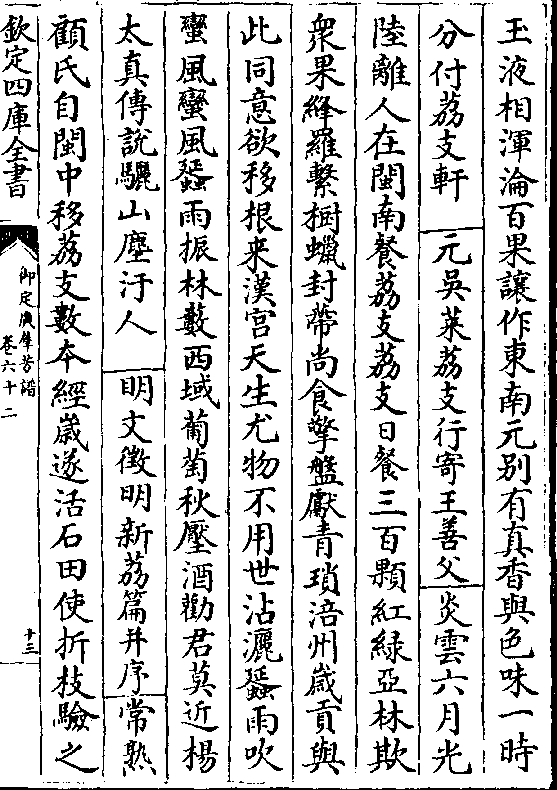 玉液相渾淪百果讓作東南元别有真香與色味一時
分付荔支軒 元吳萊荔支行寄王善父 炎雲六月光
陸離人在閩南餐荔支荔支日餐三百顆紅緑亞林欺
衆果絳羅繫樹蠟封蔕尚食擎盤獻青瑣涪州歲貢與
此同意欲移根来漢宫天生尤物不用世沾灑蜑雨吹
蠻風蠻風蜑雨振林藪西域葡萄秋壓酒勸君莫近楊
太真傳說驪山塵汙人 明文徵明新荔篇并序 常熟
顧氏自閩中移荔支數本經歲遂活石田使折枝驗之
欽定四庫全書
御定廣羣芳譜
卷六十二
十三